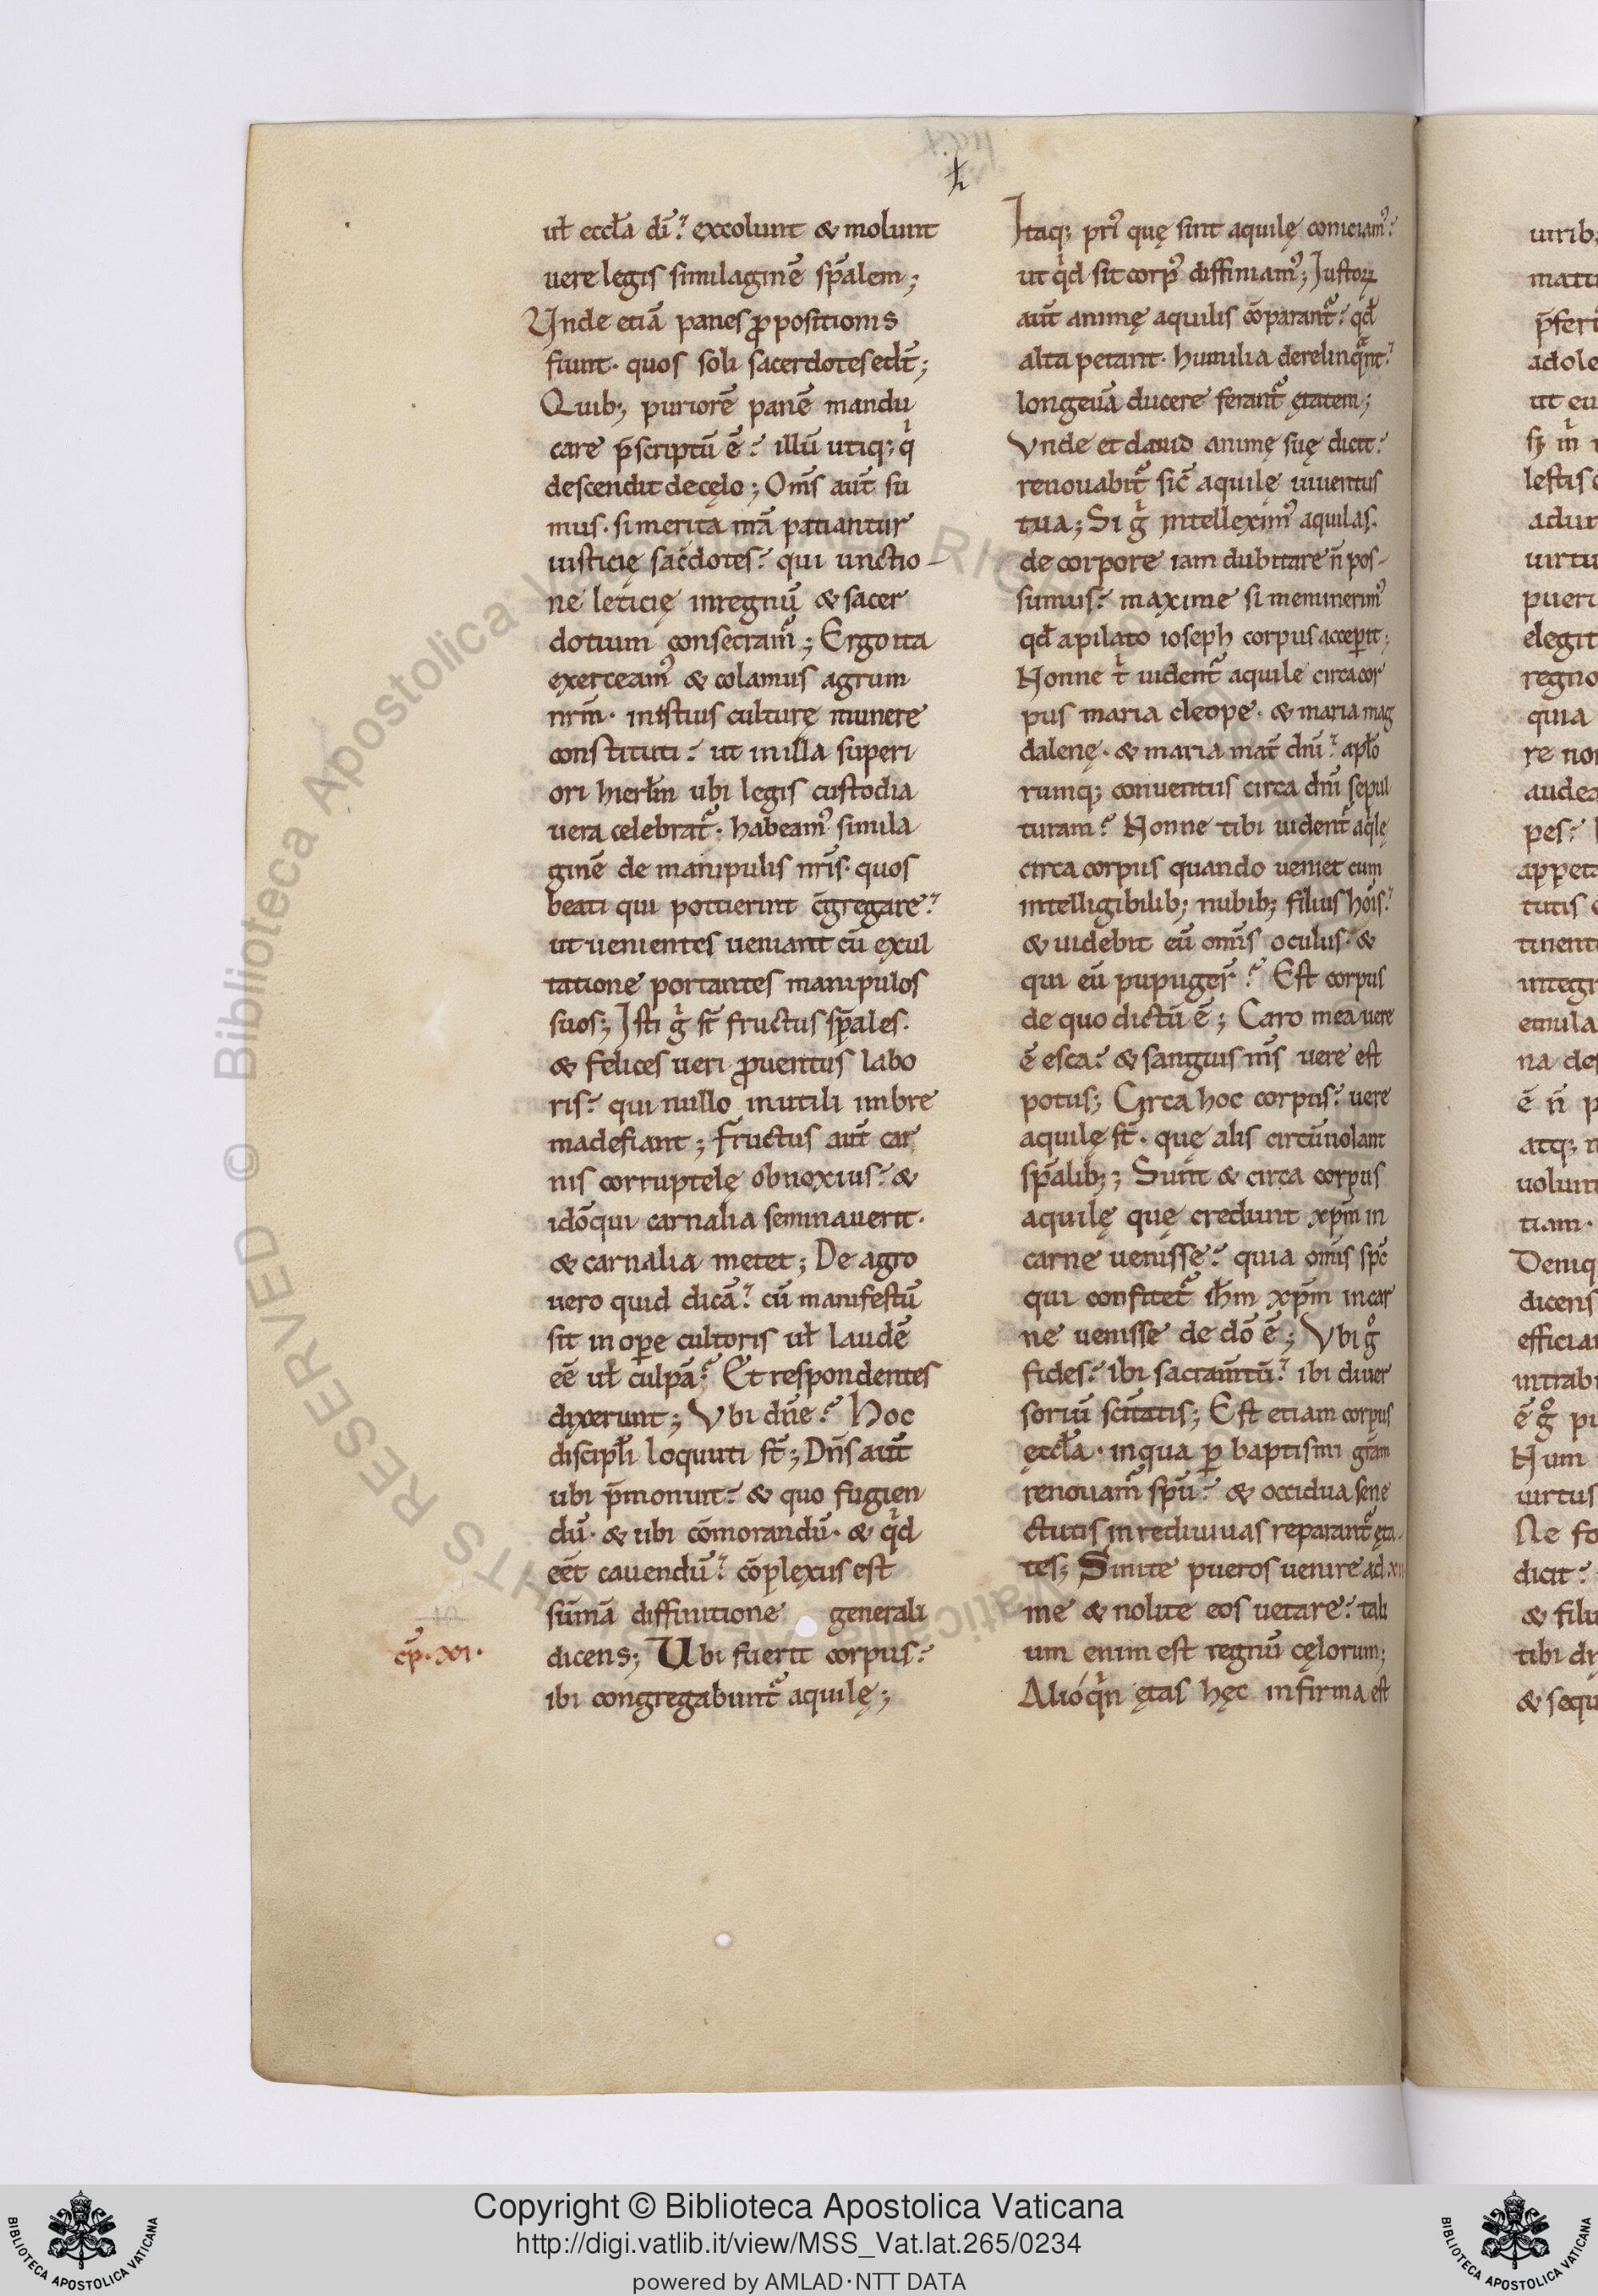 ul̄ eccl̄a dī? excolunt & molunt
uere legis similaginē sp̄alem;
Vnde etiā panes ꝓpositionis
fiunt· quos soli sacerdotes edt̄;
Quib; puriorē panē mandu
care p̄scriptū ē? illū utiq; qͥ
descendit de cęlo; Om̄s aut̄ su
mus· si merita m̄a patiantur
iusticię sac̄dotes? qui unctio-
ne leticię in regnū & sacer
dotium consecram̄; Ergo ita
exerceamꝰ & colamus agrum
nr̄m· in istius culturę munere
constituti? ut in illa superi
ori hierl̄m ubi legis custodia
uera celebrat̄· habeamꝰ simila
ginē de manipulis nr̄is· quos
beati qui potuerint c̄gregare?
ut uenientes ueniant cū exul
tatione portantes manipulos
suos; Isti gͥ st̄ fructus sp̄ales·
& felices ueri ꝓuentus labo
ris? qui nullo inutili imbre
madefiant; Fructus aut̄ car
nis corruptelę obnoxius? &
idō qui carnalia seminauerit·
& carnalia metet; De agro
uero quid dicā? cū manifestū
sit in oꝑe cultoris ul̄ laudē
eē ul̄ culpā? Et respondentes
dixerunt; Vbi dn̄e? Hoc
discipl̄i loquuti st̄; Dn̄s aut̄
ubi p̄monuit? & quo fugien
dū· & ubi cōmorandū· & qͥd
eēt cauendū? cōplexus est
sūmā diffinitione generali
cp̄· XI·
dicens; Vbi fuerit corpus?
ibi congregabunt̄ aquilę;
Itaq; priꝰ quę sint aquilę coniciamꝰ?
ut qͥd sit corpꝰ diffiniamꝰ; Iustoꝝ
aut̄ animę aquilis cōparant̄? qd̄
alta petant· humilia derelinqͣnt?
longeuā ducere ferant̄ ętatem;
Vnde et dauid animę suę dicit?
renouabit̄ sic̄ aquilę iuuentus
tua; Si gͥ intelleximꝰ aquilas·
de corpore iam dubitare n̄ pos-
sumus? maxime si meminerimꝰ
qd̄ a pilato ioseph corpus acceꝑit;
Nonne tͥ uident̄ aquile circa cor
pus maria cleope· & maria mag
dalenę· & maria mat̄ dn̄i? apl̄o
rumq; conuentus circa dn̄i sepul
turam? Nonne tibi uident̄ aqͥlę
circa corpus quando ueniet cum
intelligibilib; nubib; filius hōis?
& uidebit eū omīs oculus· &
qui eū pupuger̄? Est corpus
de quo dictū ē; Caro mea uere
ē esca? & sanguis m̄s uere est
potus; Circa hoc corpus? uere
aquilę st̄· quę alis circūuolant
sp̄alib;; Sunt & circa corpus
aquilę quę credunt xp̄m in
carne uenisse? quia omīs spc̄
qui confitet̄ ih̄m xp̄m in car
ne uenisse de dō ē; Vbi gͦ
fides? ibi sacram̄tū? ibi diuer
soriū sc̄itatis; Est etiam corpus
ęccl̄a· in qua ꝑ baptismi gr̄am
renouam̄ spū? & occidua sene
ctutis in rediuiuas reparant̄ ęta-
tes; Sinite pueros uenire ad
me & nolite eos uetare? tali
um enim est regnū cęlorum;
Alióqͥn ętas hęc infirma est
Copyright © Biblioteca Apostolica Vaticana
http://digi.vatlib.it/view/MSS_Vat.lat.265/0234
powered by AMLAD·NTT DATA